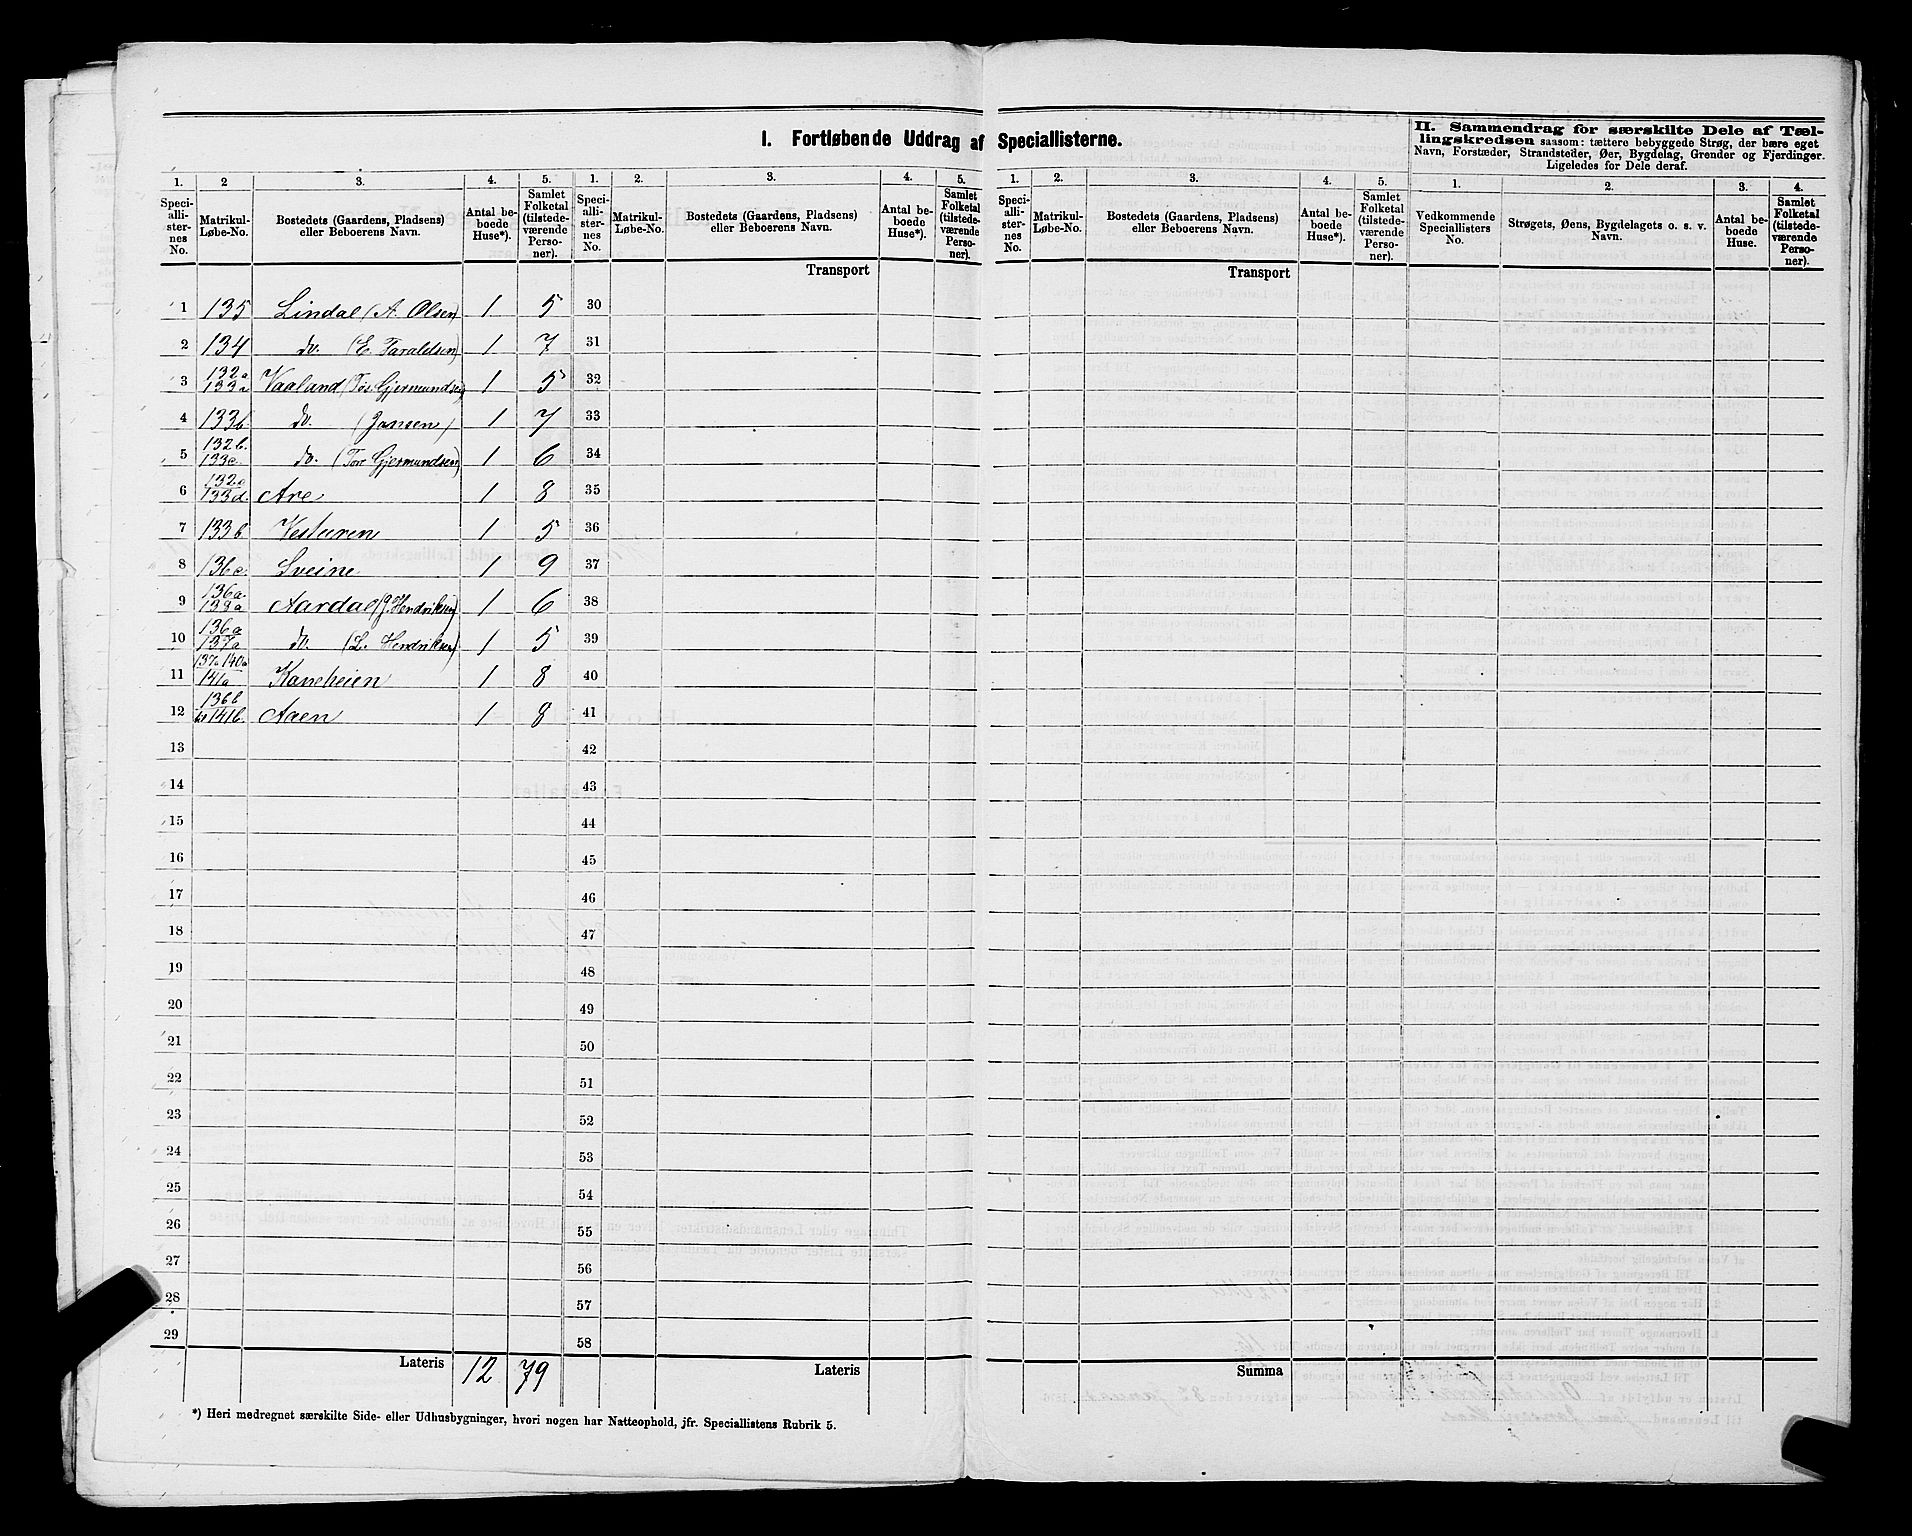 I. Fortløbende Uddrag af Speciallisterne.
II. Sammendrag for særskilte Dele af Tæl-
lingskredsen saasom: tættere bebyggede Strøg, der bære eget
Navn, Forstæder, Strandsteder, Øer, Bygdelag, Grender og Fjerdinger.
Ligeledes for Dele deraf.
1. 2 3. 4. 5. 1. 2. 3. 4. 5. 1. 2. 3. 4. 5. 1. 2. 3. 4.
Speci-
alli-
ster-
nes
No.
Matrikul-
Løbe-No.
Bostedets (Gaardens, Pladsens)
eller Beboerens Navn.
Antal be-
boede
Huse*).
Samlet
Folketal
(tilstede-
værende
Perso-
ner).
Speci-
alli-
ster-
nes
No.
Matrikul-
Løbe-No.
Bostedets (Gaardens, Pladsens)
eller Beboerens Navn.
Antal be-
boede
Huse*).
Samlet
Folketal
(tilstede-
værende
Perso-
ner).
Speci-
alli-
ster-
nes
No.
Matrikul-
Løbe-No.
Bostedets (Gaardens, Pladsens)
eller Beboerens Navn.
Antal be-
boede
Huse*).
Samlet
Folketal
(tilstede-
værende
Perso-
ner).
Vedkommende
Speciallisters
No.
Strøgets, Øens, Bygdelagets o. s. v.
Navn.
Antal be-
boede
Huse.
Samlet
Folketal
(tilstede-
værende
Perso-
ner).
Transport Transport
1 135 Lindal (A. Olsen) 1 5 30
2 134 do. (E. Taraldsen) 1 7 31
3 132a 133a Vaaland (Tos. Gjermundsen) 1 5 32
4 133b. do. (Jansen) 1 7 33
5 132b. 133c. do. (Tore Gjermundsen) 1 6 34
6 132c 133d. Are 1 8 35
7 133b 1 5 36
8 136c. Sveine 1 9 37
9 136a. 138a Aardal (J. Hendriksen) 1 6 38
10 136a 137a do. (L. Hendriksen) 1 5 39
11 137a 140a 141a Kaneheien 1 8 40
12 136b 141b. Aaen 1 8 41
13 42
14 43
15 44
16 45
17 46
18 47
19 48
20 49
21 50
22 51
23 52
24 53
25 54
26 55
27 56
28 57
29 58
Lateris 12 79 Lateris Summa
*) Heri medregnet særskilte Side- eller Udhusbygninger, hvori nogen har Natteophold, jfr. Speciallistens Rubrik 5.